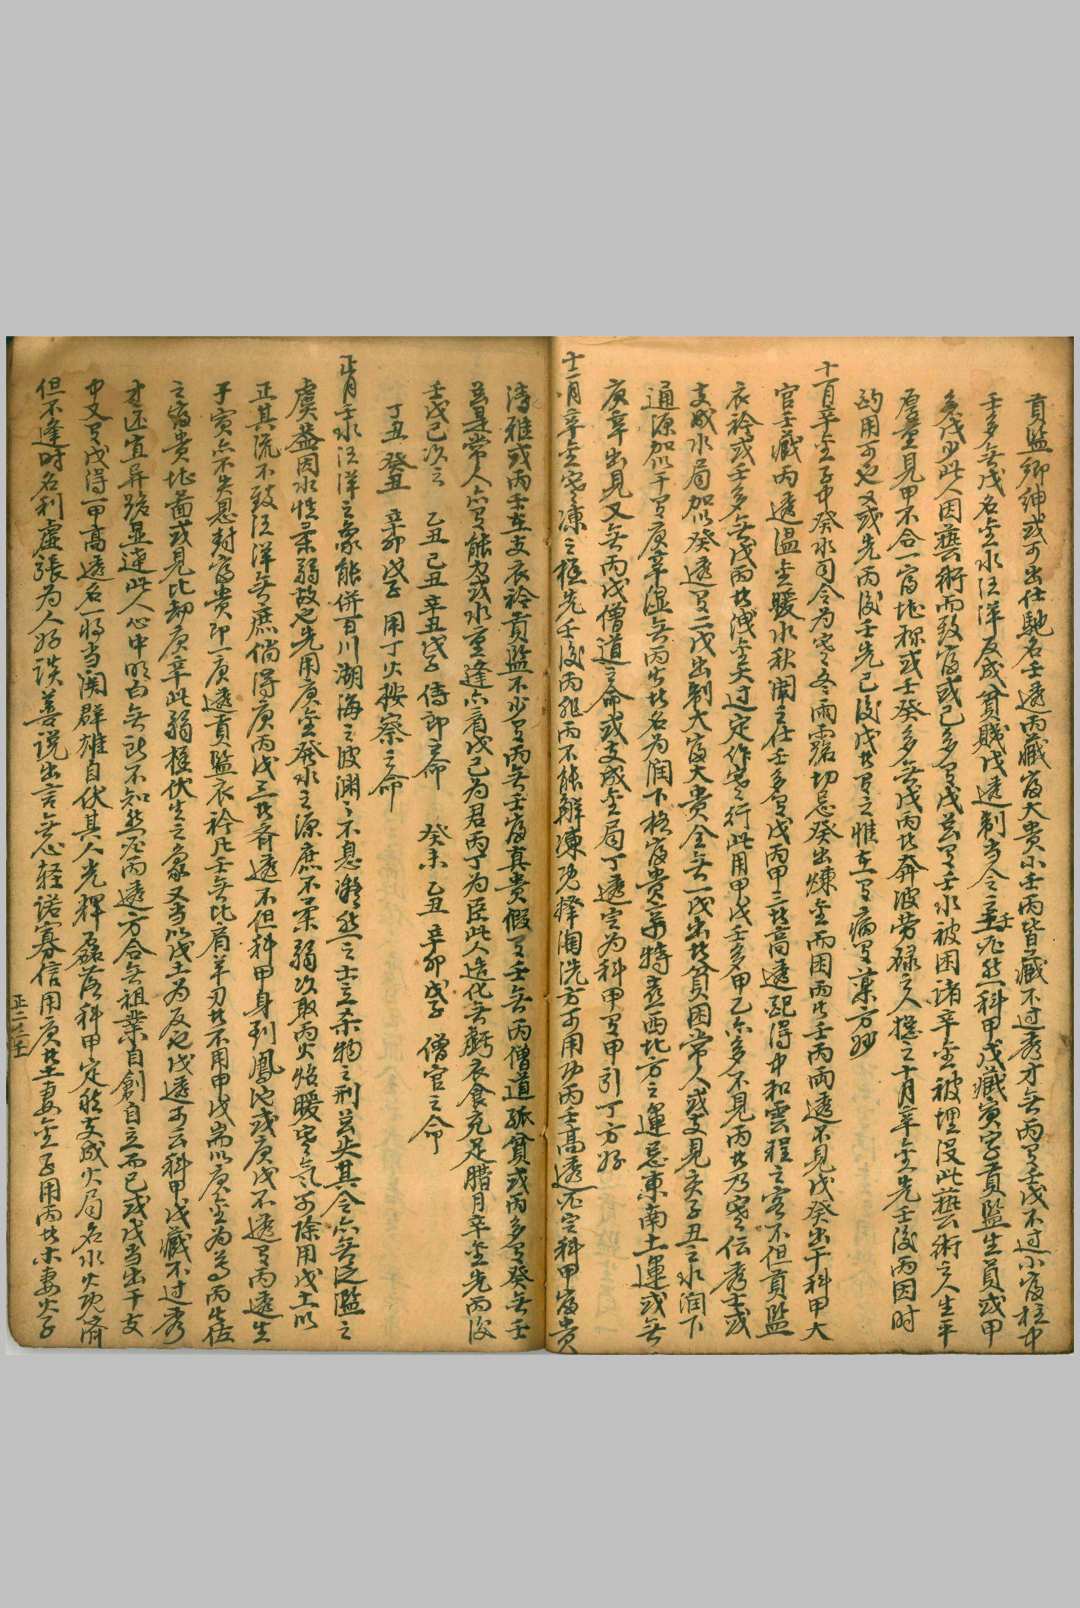 貢監卿紳或可出仕馳名壬透丙藏富大貴小壬丙皆藏不过秀才無丙有壬戊不过小富柱中
壬多無戊名金水汪洋反成貧賤戊透制当令之壬定然科甲戊藏寅字貢監生員或甲
多戊少此人因藝術而致富或己多有戊並有壬水被困諸辛金被埋没此藝術之人生平
塵量見甲不合一富地称或壬癸多多無戊丙者奔波劳碌之人總之十月辛金先壬後丙因时
酌用可也又或先丙後壬先己後戊者有之惟在有病有藥方妙
十一月辛金子中癸水司令为寒冬雨露切忌癸出煉金而困丙也壬丙兩透不見戊癸出干科甲大
官壬藏丙透温金暖水秋闈之任壬多有戊丙甲三者高透配得中和雲程之客不但貢監
衣衿或壬多無戊丙者泄金太过定作寒行此用甲戊壬多甲乙亦多不見丙者乃寒伝秀士或
支成水局加以癸透有二戊出制大富大貴全無一戊出者貧困常人或支見亥子丑之水润下
通源加以干有庚辛湿無丙出者名为润下格富貴寿特喜西北方之運忌東南土運或無
庚辛出見又無丙戊僧道之命或支成金局丁透定为科甲有甲引丁方好
十二月辛金寒凍之極先壬後丙非丙不能解凍既擇淘洗方可用功丙壬高透定字科甲富貴
清雅或丙壬在支衣衿貢監不少有丙無壬富真貴假有壬無丙僧道孤貧或丙多有癸無壬
並是常人亦有能力或水重逢亦看戊己为君丙丁为臣此人造化若虧衣食充足腊月辛金先丙後
壬戊己次之 乙丑己丑辛丑戊子 侍郎之命 癸未乙丑辛卯戊子 僧官之命
丁丑癸丑辛卯戊子 用丁火按察之命
正月壬水汪洋之象能併百川湖海之波渊之不息凝然之土立杀物之刑並失其令亦無泛濫之
虞蓋因水性柔弱故也先用庚金癸水之源庶不柔弱次取丙火焰暖寒之气可除用戊土以
正其流不致汪洋無庶倘得庚丙戊三者齐透不但科甲身到鳳池或庚戊不透有丙透生
于寅亦不失恩封富貴即一庚透貢監衣衿凡壬無比肩羊刃者不用甲戊耑以庚金为为丙火佐
之富貴地面或見比刼庚辛此弱極伏生之象又当以戊土为反也戊透可云科甲戊藏不过秀
才还宜异路显達此人心中明白無所不知然有丙透方合無祖業自創自立而已或戊当出干支
中又有戊得一甲高透名一將当関群雄自伏其人光輝磊落科甲定然支成火局名水火既濟
但不逢时名利虛張为人好談善說出言無心輕諾寡信用庚者土妻金子用丙者木妻火子
正二三壬